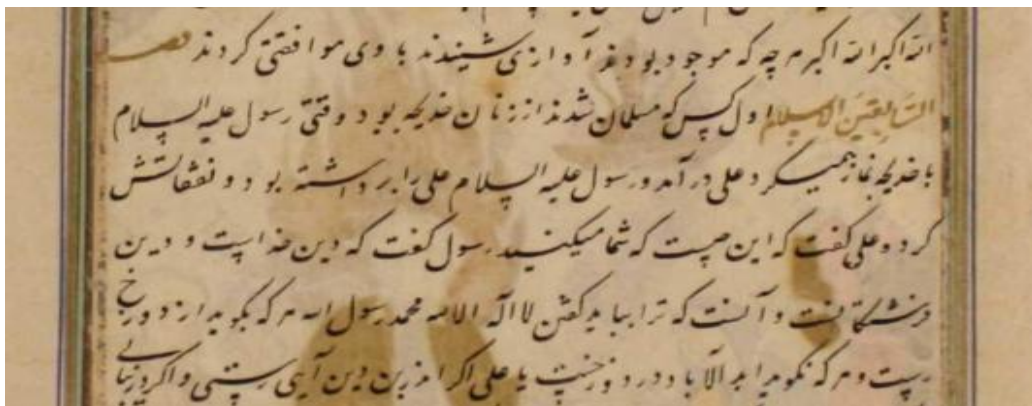 الله اکبر الله اکبر هر چه که موجود بودند آوازی شنیدند با وی موافقتی کردند قصه
السابقین الاسلام اول کس که مسلمان شدند از زنان خدیجه بود وقتی رسول علیه السلام
با خدیجه نماز همیکرد علی در آمد و رسول علیه السلام علی را برداشته بود و نفقاتش
کرد و علی گفت که این چیست که شما میکنید رسول گفت که دین خدایست و دین
فرشتگانست و آنست که ترا بباید گفتن لا اله الا الله محمد رسول الله هر که بگوید از دوزخ
رست و هر که نگوید ابد الاباد در دوزخست یا علی اگر اندرین دین آیی رستی و اگر